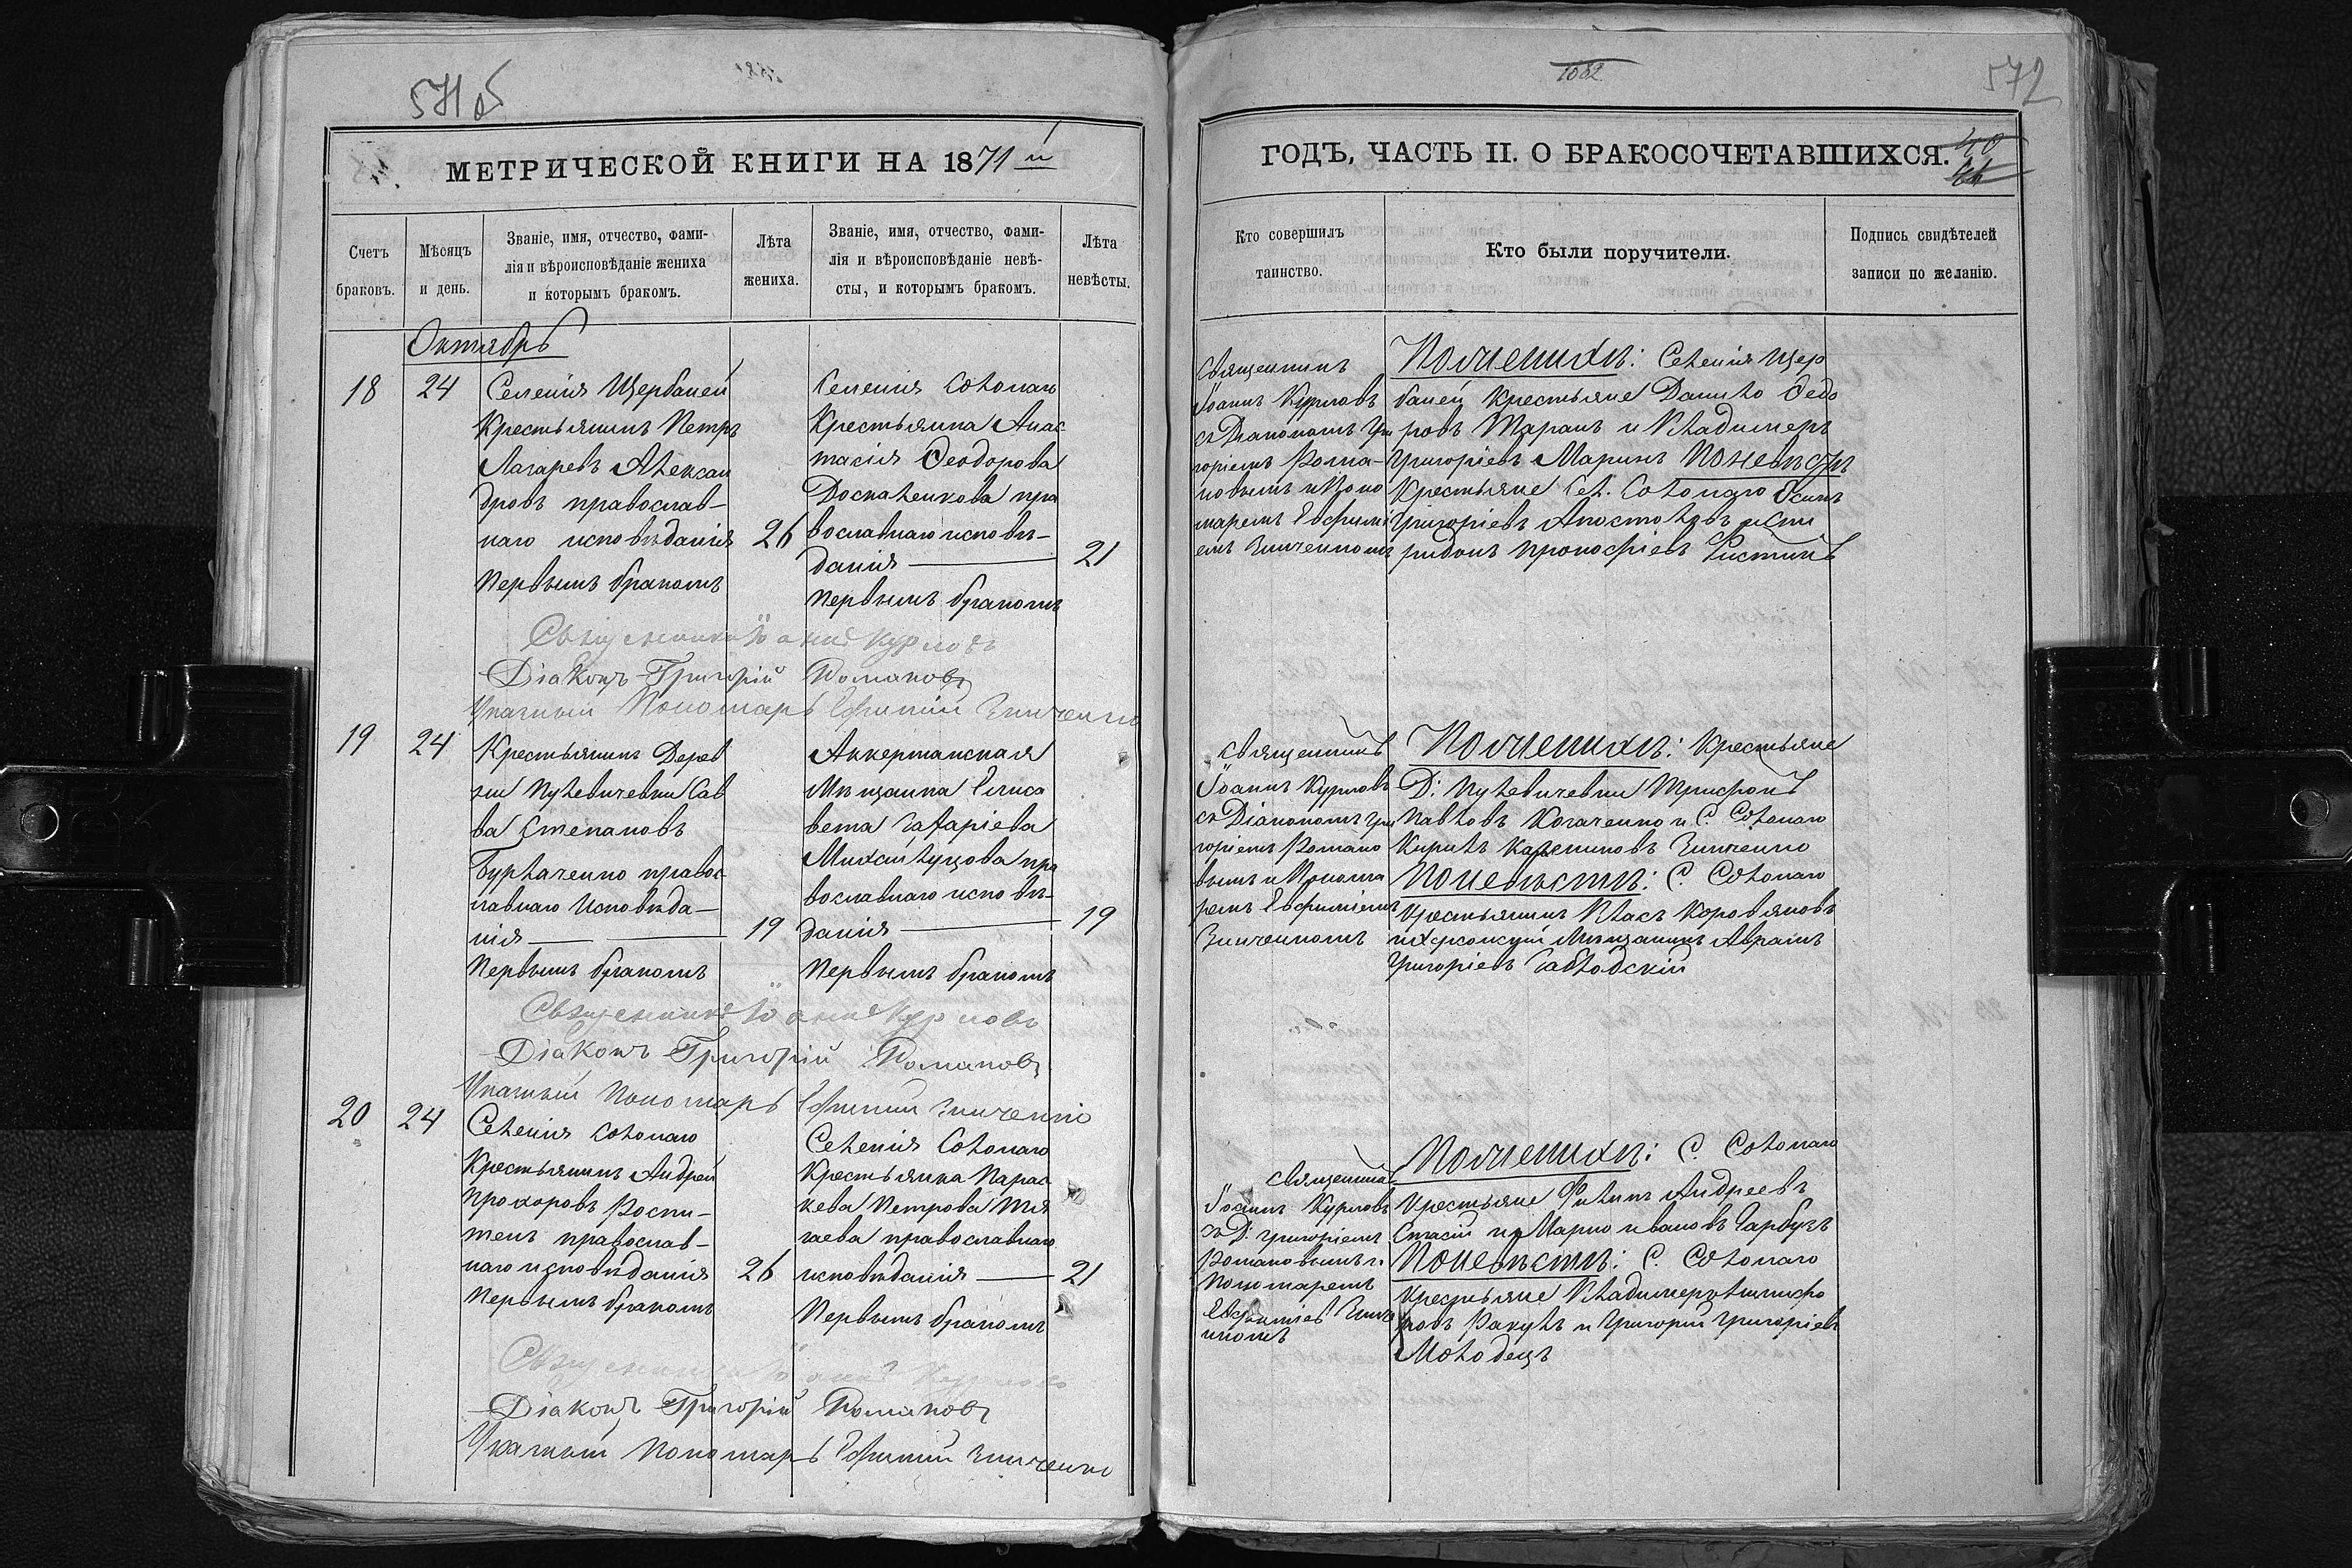 571 об
МЕТРИЧЕСКОЙ КНИГИ НА 1871 й
Счетъ
браковъ.
Мѣсяцъ
и день.
Званіе, имя, отчество, фами-
лія и вѣроисповѣданіе жениха
и которымъ бракомъ.
Лѣта
жениха.
Званіе, имя, отчество, фами-
лія и вѣроисповѣданіе невѣ-
сты, и которымъ бракомъ.
Лѣта
невѣсты.
Октябрь
18
24
Селенія Щербаней
Крестьянинъ Петръ
Лазаревъ Алексан
дровъ православ-
наго исповѣданія
Первымъ бракомъ
26
Селенія Солонаго
Крестьянка Анас
тасія Ѳеодорова
пра
вославнаго исповѣ-
данія
Первымъ бракомъ
21
Священникъ Іоаннъ Курловъ
Діаконъ Григорій Романовъ
Указный Пономарь Ефимій Зинченко
19
24
Крестьянинъ Дерев
ни Пулевичевки Сав
ва Степановъ
Бурлаченко правос
лавнаго Исповѣда-
нія
Первымъ бракомъ
19
Аккерманская
Мѣщанка Елиса
вета Захаріева
Михайлуцова пра
вославнаго исповѣ-
данія
Первымъ бракомъ
19
Священникъ Іоаннъ Курловъ
Діаконъ Григорій Романовъ
Указный Пономарь Ефимій Зинченко
20
24
Селенія Солонаго
Крестьянинъ Андрей
Прохоровъ Роспи-
тенъ православ-
наго исповѣданія
Первымъ бракомъ
26
Селенія Солонаго
Крестьянка Парас
кева Петрова Тя
гаева православнаго
исповѣданія
Первымъ бракомъ
21
Священникъ Іоаннъ Курловъ
Діаконъ Григорій Романовъ
Указный Пономарь Ефимій Зинченко
1082
572
ГОДЪ, ЧАСТЬ II. О БРАКОСОЧЕТАВШИХСЯ.
40
Кто совершилъ
таинство.
Кто были поручители.
Подпись свидѣтелей
записи по желанію.
Священникъ
Іоаннъ Курловъ
съ Діакономъ Гри
горіемъ Рома-
новымъ и Поно
маремъ Евфимі
емъ Зинченкомъ
По женихѣ: Селенія Щер
баней Крестьяне Данило Ѳедо
ровъ Таранъ и Владимеръ
Григоріевъ Маринъ По невѣстѣ
Крестьяне Сел. Солонаго Осипъ
Григоріевъ Апостоловъ и Спи
ридонъ Прокофіевъ
Священникъ
Іоаннъ Курловъ
съ Діакономъ Гри
горіемъ Романо
вымъ и Понома
ремъ Евфиміемъ
Зинченкомъ
По женихѣ: Крестьяне
Д: Пулевичевки Трифонъ
Павловъ Косаченко и С. Солонаго
Кирилъ Зинченко
По невѣстѣ: С. Солонаго
Крестьянинъ Власъ Коровяковъ
и Херсонскій Мѣщанинъ Аврамъ
Григоріевъ Заблодскій
Священникъ
Іоаннъ Курловъ
съ Д. Григоріемъ
Романовымъ и
Пономаремъ
Евфиміемъ Зинче
нкомъ
По женихѣ: С. Солонаго
Крестьяне Филипъ Андреевъ
Спасій и Марко Ивановъ Гарбузъ
По невѣстѣ: С. Солонаго
Крестьяне Владимеръ
ровъ Ракулъ и Григорій Григоріевъ
Молодецъ